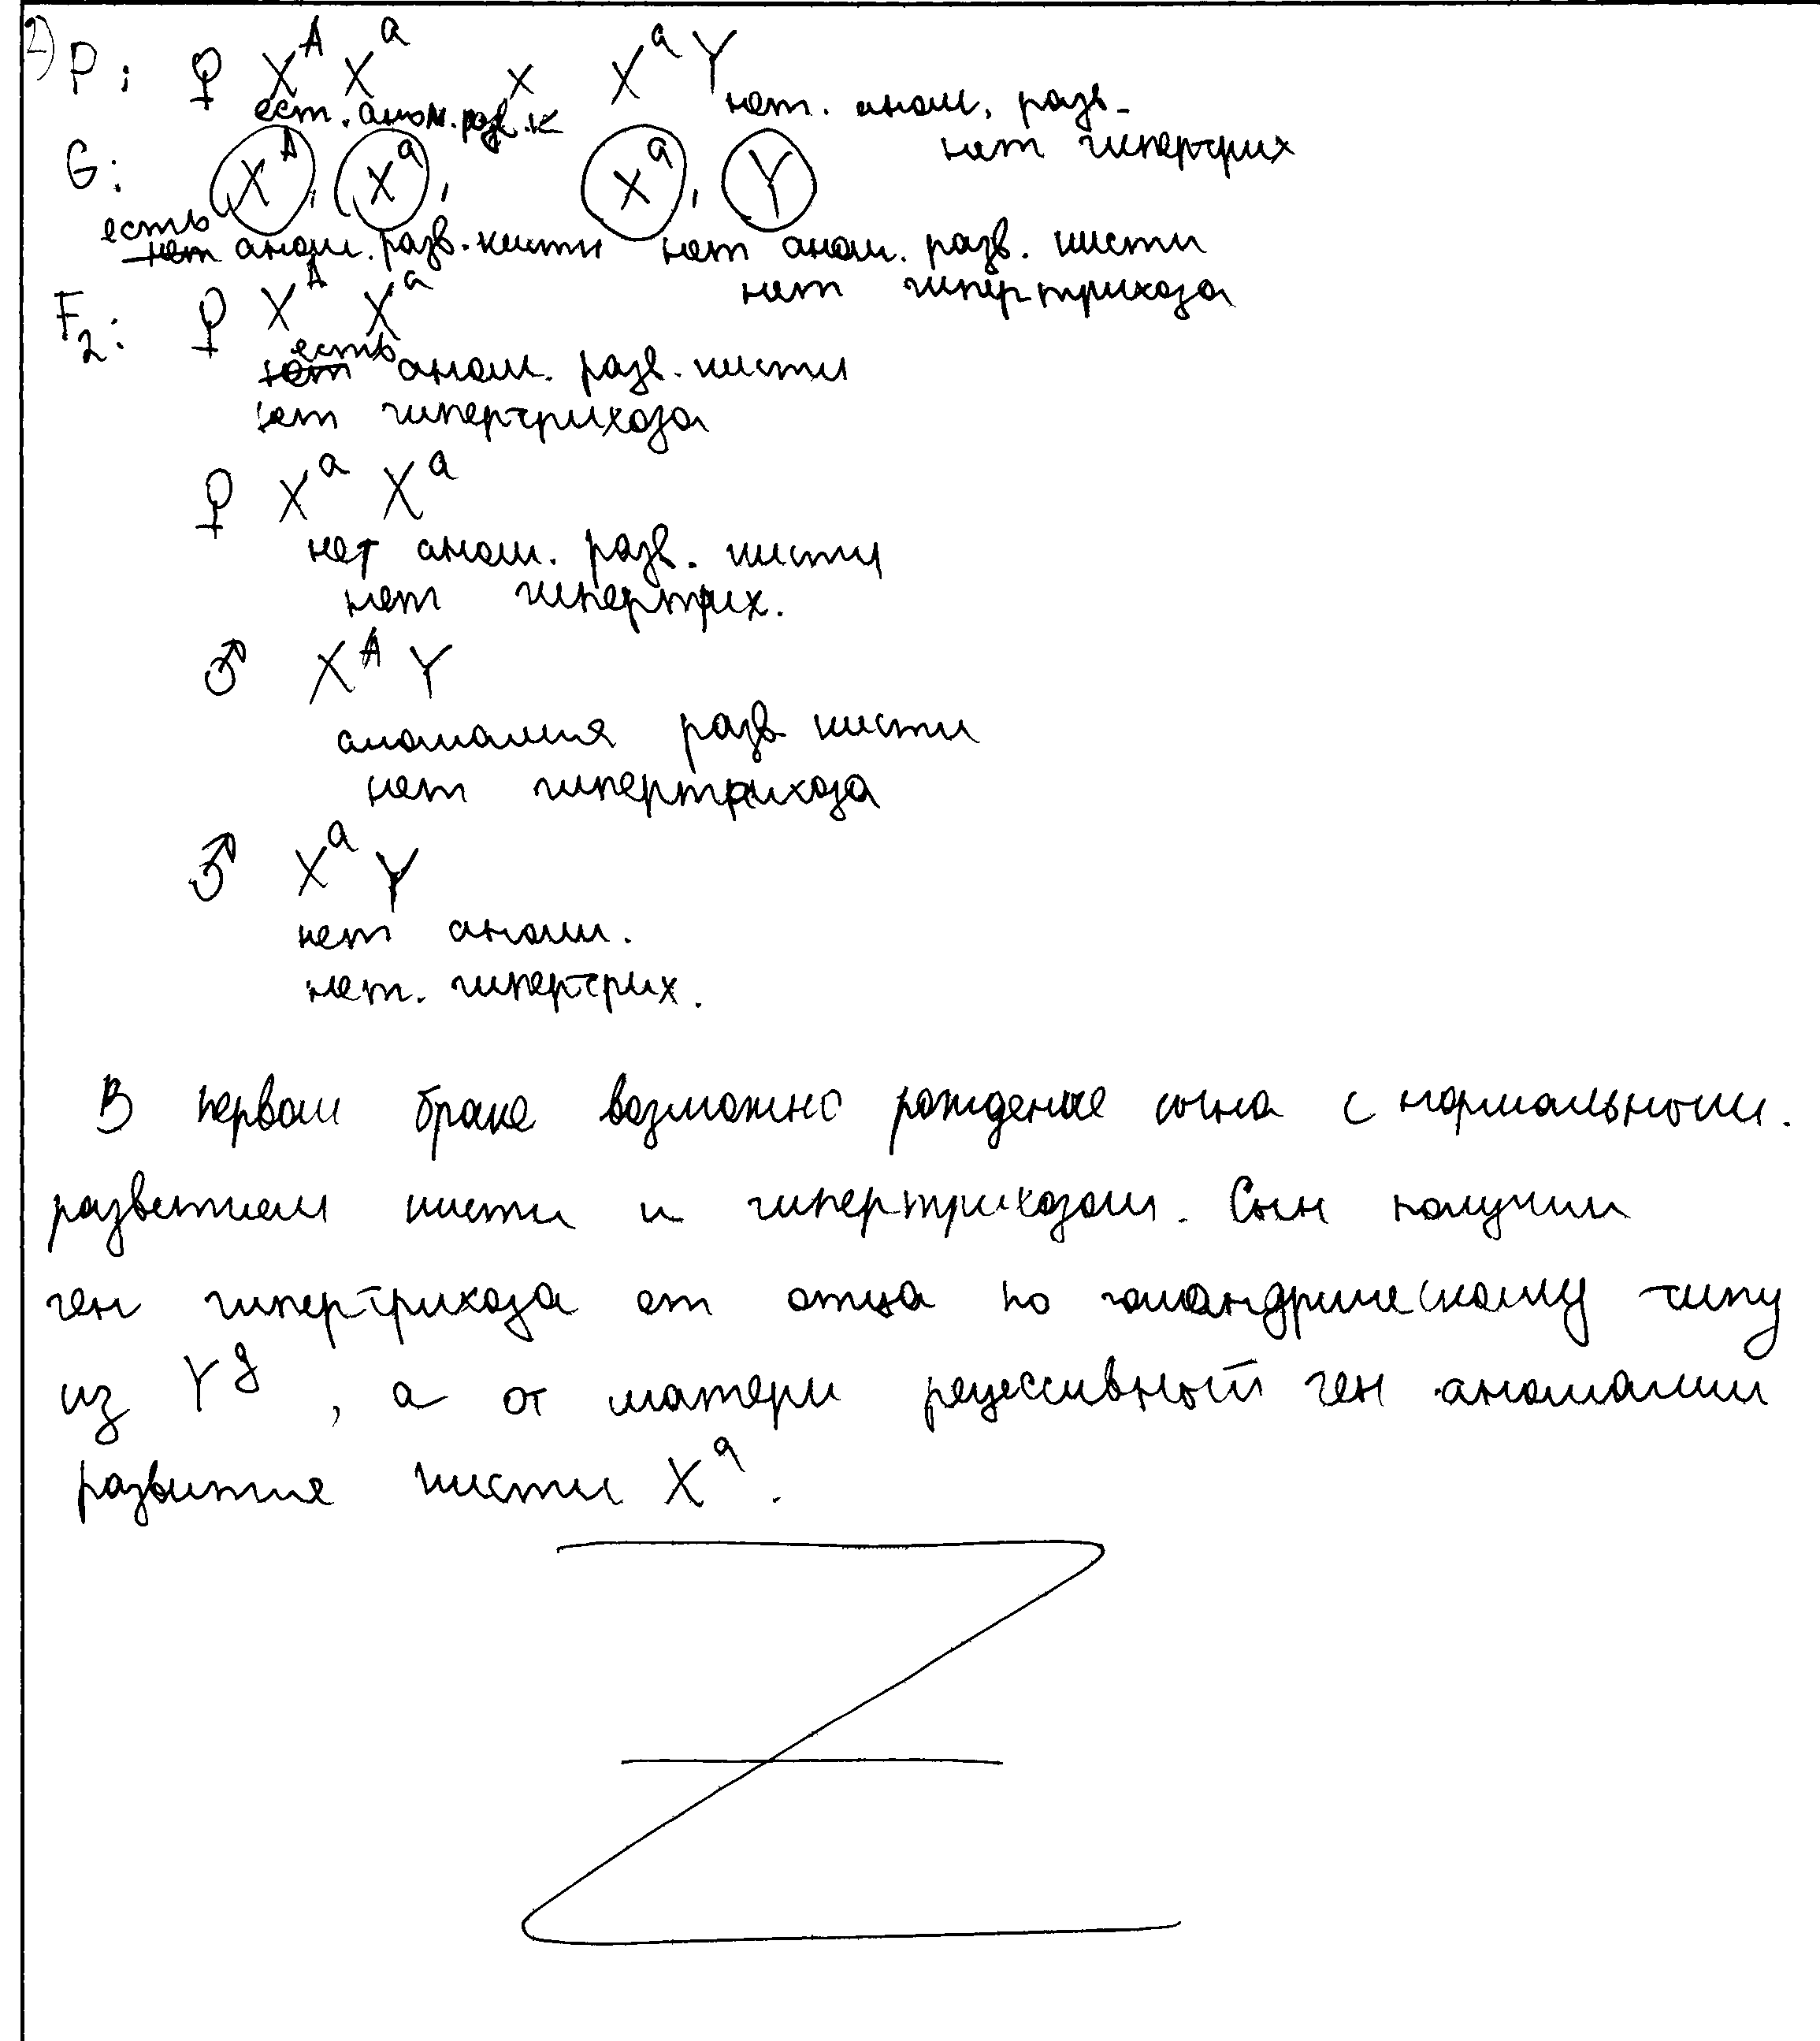 2) P: ♀ X^A X^a x X^a Y
ест. аном. разв. к нет. аном. разв.
нет гипертрих
G: X^A, X^a, X^a, Y
есть
нет аном. разв. кисти нет аном. разв. кисти
нет гипертрихоза
F2: ♀ X^A X^a
есть
нет аном. разв. кисти
нет гипертрихоза
♀ X^a X^a
нет аном. разв. кисти
нет гипертрих.
♂ X^A Y
аномалия разв кисти
нет гипертрихоза
♂ X^a Y
нет аном.
нет. гипертрих.
В первом браке возможно рождение сына с нормальным.
развитием кисти и гипертрихозом. Сын получил
ген гипертрихоза от отца по голандрическому типу
из Y^g, а от матери рецессивный ген аномалии
развития кисти X^a.